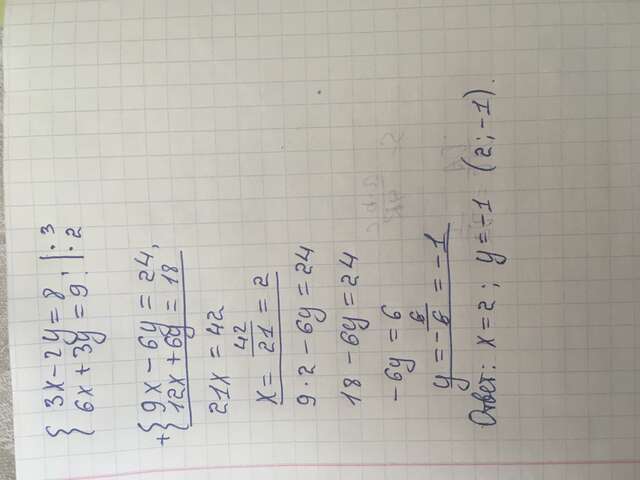 { 3x - 2y = 8, | · 3
6x + 3y = 9. | · 2
+ { 9x - 6y = 24,
12x + 6y = 18
21x = 42
x = 42/21 = 2
9 · 2 - 6y = 24
18 - 6y = 24
-6y = 6
y = - 6/6 = -1
Ответ: x = 2; y = -1 (2; -1).